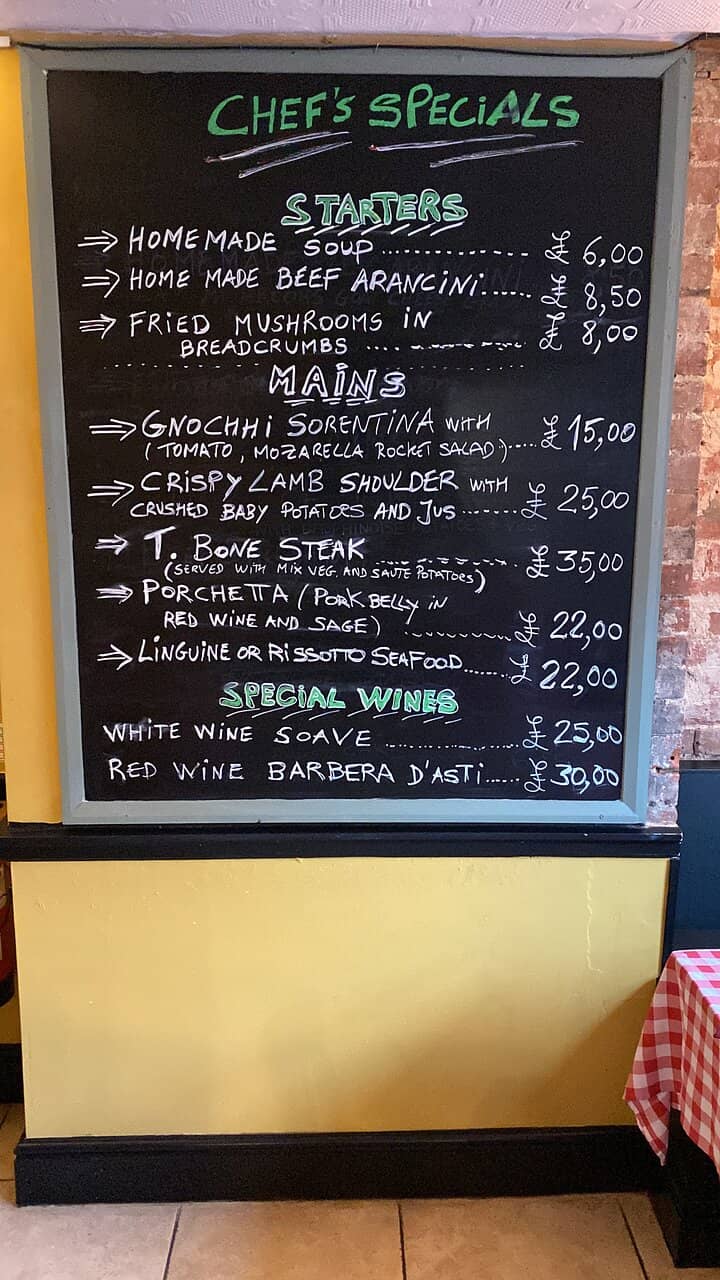 CHEF'S SPECIALS
STARTERS
⇒ HOME MADE SOUP ............... £ 6,00
⇒ HOME MADE BEEF ARANCINI...... £ 8,50
⇒ FRIED MUSHROOMS IN
BREADCRUMBS ............... £ 8,00
MAINS
⇒ GNOCHHI SORENTINA WITH
(TOMATO, MOZARELLA ROCKET SALAD)..... £ 15,00
⇒ CRISPY LAMB SHOULDER WITH
CRUSHED BABY POTATOES AND JUS ....... £ 25,00
⇒ T. BONE STEAK ............... £ 35,00
(SERVED WITH MIX VEG. AND SAUTE POTATOES)
⇒ PORCHETTA (PORK BELLY IN
RED WINE AND SAGE) ............... £ 22,00
⇒ LINGUINE OR RISSOTTO SEAFOOD...... £ 22,00
SPECIAL WINES
WHITE WINE SOAVE ............... £ 25,00
RED WINE BARBERA D'ASTI...... £ 30,00